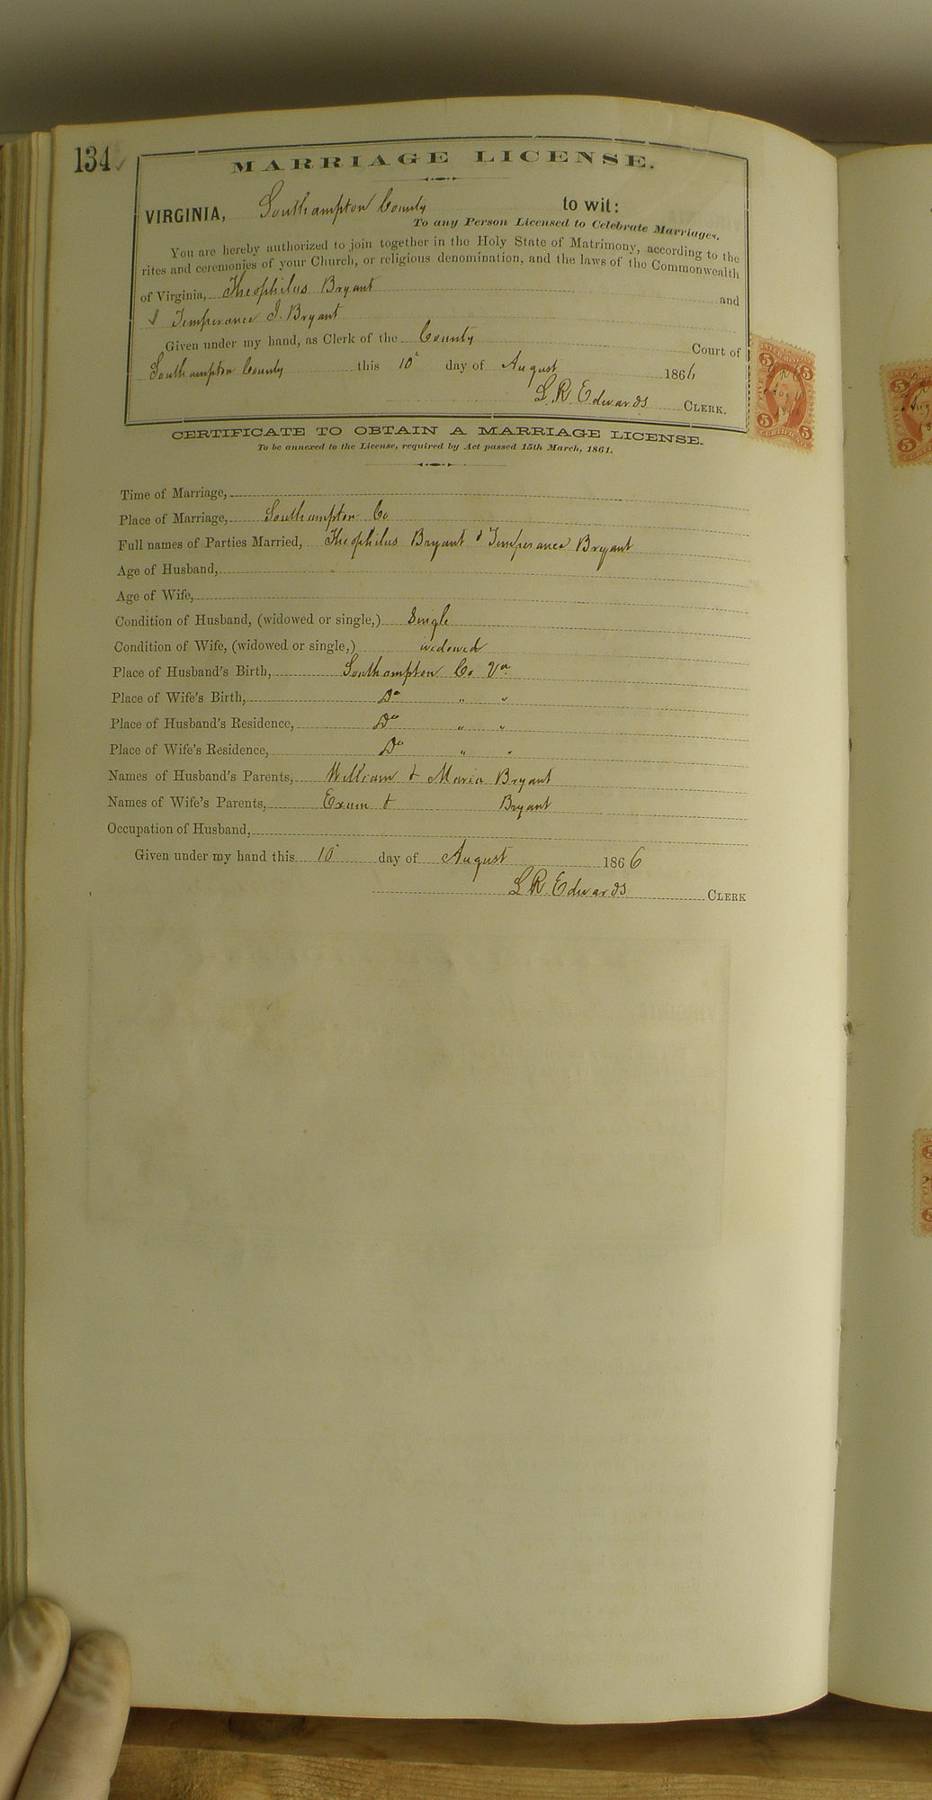 134
MARRIAGE LICENSE.
VIRGINIA, Southampton County to wit:
To any Person Licensed to Celebrate Marriages.
You are hereby authorized to join together in the Holy State of Matrimony, according to the
rites and ceremonies of your Church, or religious denomination, and the laws of the Commonwealth
of Virginia, Theophilus Bryant and
& Temperance J. Bryant
Given under my hand, as Clerk of the County Court of
Southampton County this 10 day of August 1866
L R Edwards CLERK.
CERTIFICATE TO OBTAIN A MARRIAGE LICENSE.
To be annexed to the License, required by Act passed 15th March, 1861.
Time of Marriage,
Place of Marriage, Southampton Co
Full names of Parties Married, Theophilus Bryant & Temperance Bryant
Age of Husband,
Age of Wife,
Condition of Husband, (widowed or single,) Single
Condition of Wife, (widowed or single,) widowed
Place of Husband's Birth, Southampton Co Va
Place of Wife's Birth, Do " "
Place of Husband's Residence, Do " "
Place of Wife's Residence, Do " "
Names of Husband's Parents, William & Maria Bryant
Names of Wife's Parents, Exum & Bryant
Occupation of Husband,
Given under my hand this 10 day of August 1866
L R Edwards CLERK